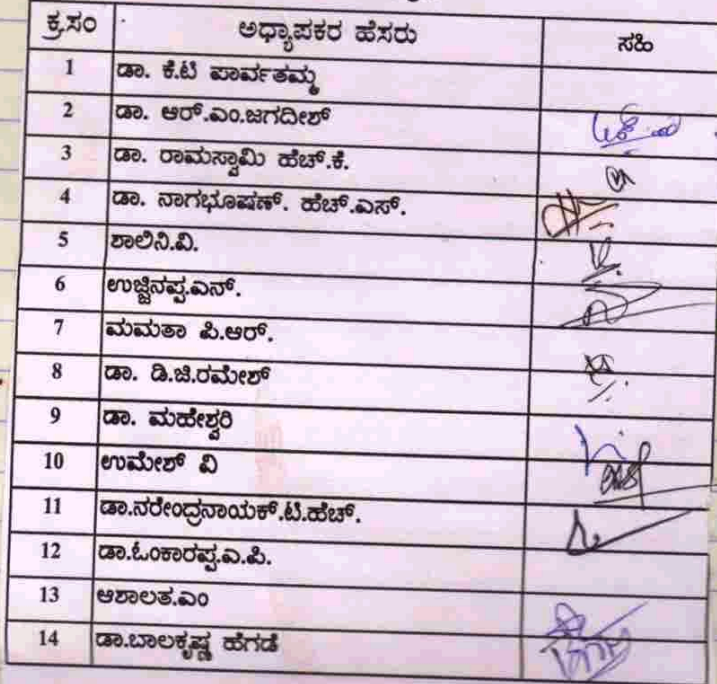 ಕ್ರ.ಸಂ ಅಧ್ಯಾಪಕರ ಹೆಸರು ಸಹಿ
1 ಡಾ. ಕೆ.ಟಿ ಪಾರ್ವತಮ್ಮ
2 ಡಾ. ಆರ್.ಎಂ.ಜಗದೀಶ್
3 ಡಾ. ರಾಮಸ್ವಾಮಿ ಹೆಚ್.ಕೆ.
4 ಡಾ. ನಾಗಭೂಷಣ್. ಹೆಚ್.ಎಸ್.
5 ಶಾಲಿನಿ.ವಿ.
6 ಉಜ್ಜಿನಪ್ಪ.ಎನ್.
7 ಮಮತಾ ಪಿ.ಆರ್.
8 ಡಾ. ಡಿ.ಜಿ.ರಮೇಶ್
9 ಡಾ. ಮಹೇಶ್ವರಿ
10 ಉಮೇಶ್ ವಿ
11 ಡಾ.ನರೇಂದ್ರನಾಯಕ್.ಟಿ.ಹೆಚ್.
12 ಡಾ.ಓಂಕಾರಪ್ಪ.ಎ.ಪಿ.
13 ಆಶಾಲತ.ಎಂ
14 ಡಾ.ಬಾಲಕೃಷ್ಣ ಹೆಗಡೆ